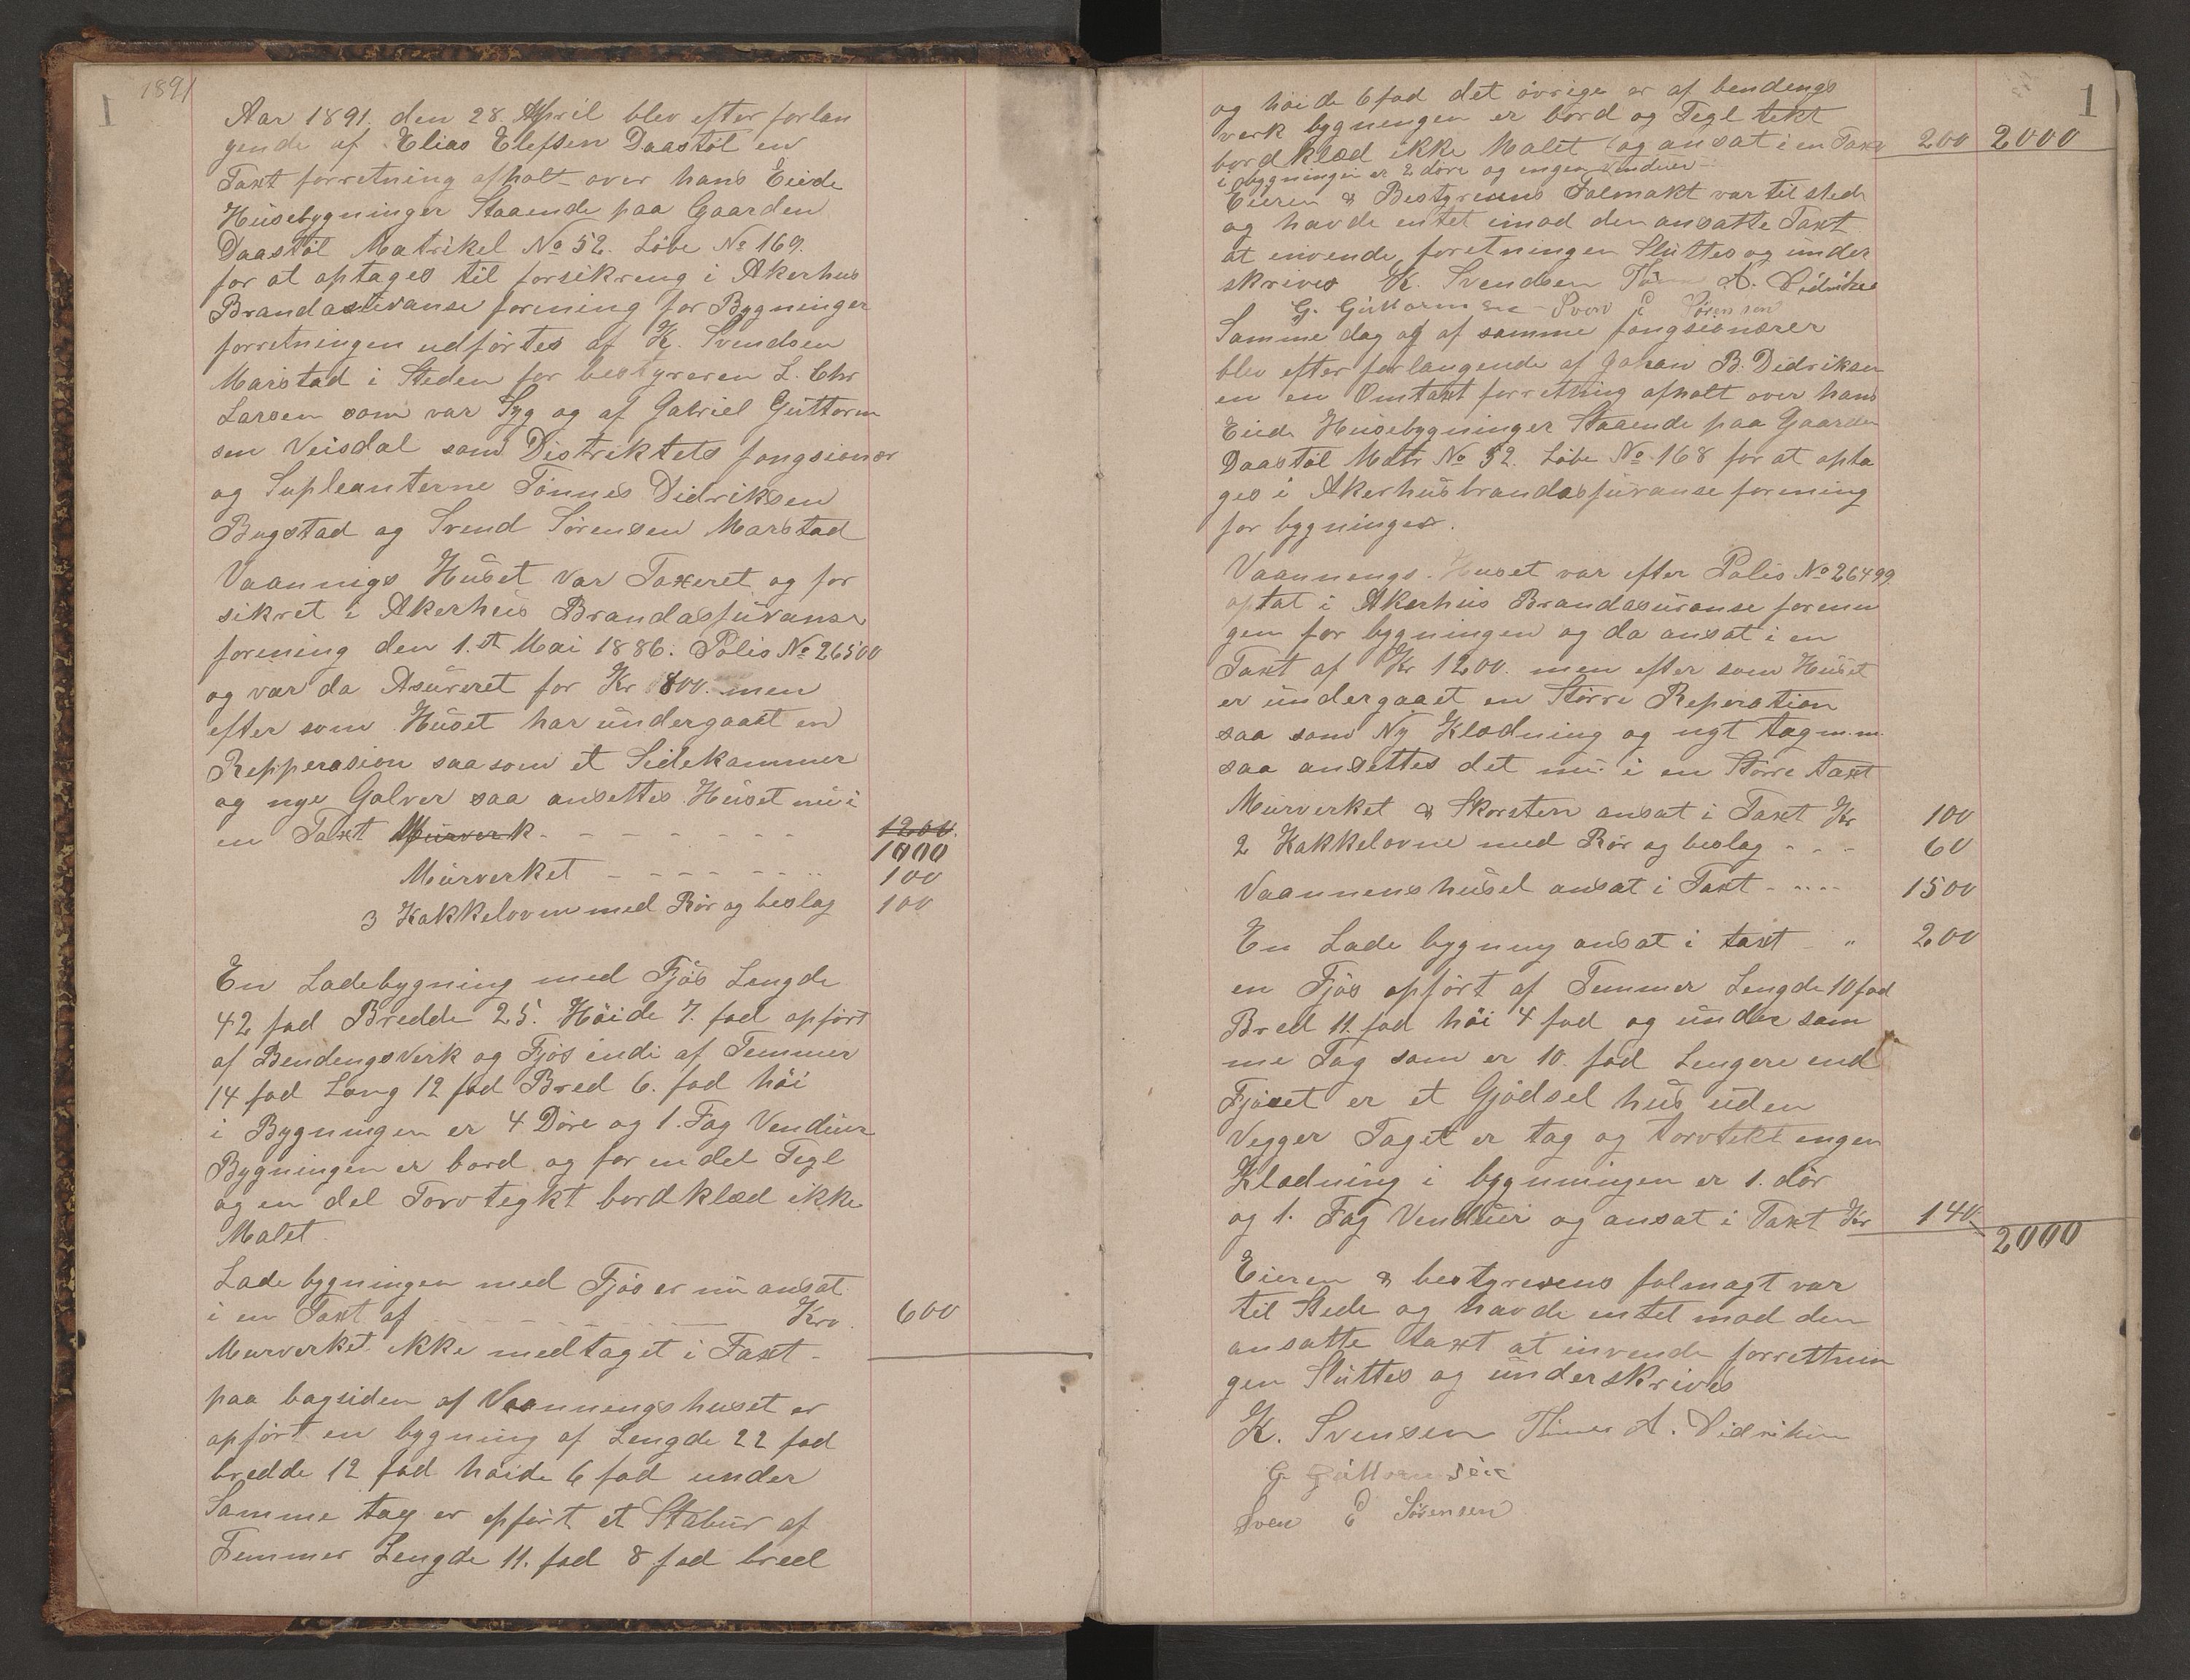 1891
1
Aar 1891. den 28 April blev efter forlan
gende af Elias Elefsen Daastöl en
Taxt forretning afholt over hans Eiede
Husebygninger Staaende paa Gaarden
Daastöl Matrikel No 52. Löbe No 169.
for at optages til forsikreng i Akerhus
Brandasuranse forening for Bygninger
forretningen udförtes af K. Svendsen
Marstad i Steden for bestyreren L. Chr
Larsen som var Syg og af Gabriel Guttorm
sen Veisdal som Distriktets fongsionær
og Supleanterne Tönnes Didriksen
Bugstad og Svend Sörensen Marstad
Vaannigs Huset var Taxeret og for
sikret i Akerhus Brandassuranse
forening den 1.st Mai 1886. Polis No 26500
og var da Asureret for Kr 800. men
efter som Huset har undergaaet en
Repperasion saa som et Sidekammer
og nye Golver saa ansettes Huset nu i
en Taxt Murverk - - - - - - - 1200.
1000
Murverket - - - - - - 100
3 Kakkelovne med Rör og beslag 100
En Ladebygning med Fjös Lengde
42 fod Bredde 25. Höide 7. fod opfört
af BendengsVerk og Fjös indi af Temmer
14 fod Lang 12 fod Bred 6. fod höi
i Bygningen er 4 Döre og 1. Fag Venduer
Bygningen er bord og for en del Tegl
og en del Torvtegkt bordklæd ikke
Malet
Lade bygningen med Fjös er nu ansat
i en Taxt af - - - - - - Kro. 600
Murverket ikke medtaget i Taxt -
paa bagsiden af Vaannengshuset er
opfört en bygning af Lengde 22 fod
bredde 12 fod höide 6 fod under
Samme tag er opfört et Stabur af
Temmer Lengde 11. fod 8 fod bred
1
og höide 6 fod det övrige er af bendengs
verk bygningen er bord og Tegl tekt
bordklæd ikke Malet og ansat i en Taxt 200 2000
i bygningen er 2 döre og engen Venduer
Eieren & Bestyrerens Folmakt var til stede
og havde entet imod den ansatte Taxt
at invende, foretningen Sluttes og under
skrives K. Svendsen A. Didriksen
G. Guttormsen Sven E Sörensen
Samme dag og af samme fongsionærer
blev efter forlangende af Johan B. Didriksen
en en Omtaxt forretning afholt over hans
Eiede Husebygninger Staaende paa Gaarden
Daastöl Matr No 52. Löbe No 168 for at opta
ges i Akerhusbrandassuranse forening
for bygninger.
Vaannengs. Huset var efter Polis No 26499
optat i Akerhus Brandasuranse forenin
gen for bygningen og da ansat i en
Taxt af Kr 1200. men efter som Huset
er undergaaet en Större Reperation
saa som Ny Klædning og nyt tag m.m.
saa ansettes det nu i en Större taxt
Murverket & Skorsten ansat i Taxt Kr 100
2 Kakkelovne med Rör og beslag - - - 60
Vaannenshuset ansat i Taxt - - - - 1500
En Lade bygning ansat i taxt - " 200
en Fjös opfört af Temmer Lengde 10 fod
Bred 11. fod höi 4 fod og under sam
me Tag som er 10. fod Lengere end
Fjöset er et Gjödsel hus uden
Vegger Taget er tag og torvtekt engen
Klædning i bygningen er 1. dör
og 1. Fag Venduer og ansat i Taxt Kr 140
2000
Eieren & bestyrerens folmagt var
til Stede og havde entet mod den
ansatte taxt at invende forretnin
gen Sluttes og underskrives
K. Svensen A. Didriksen
G Guttormsen
Sven E Sörensen